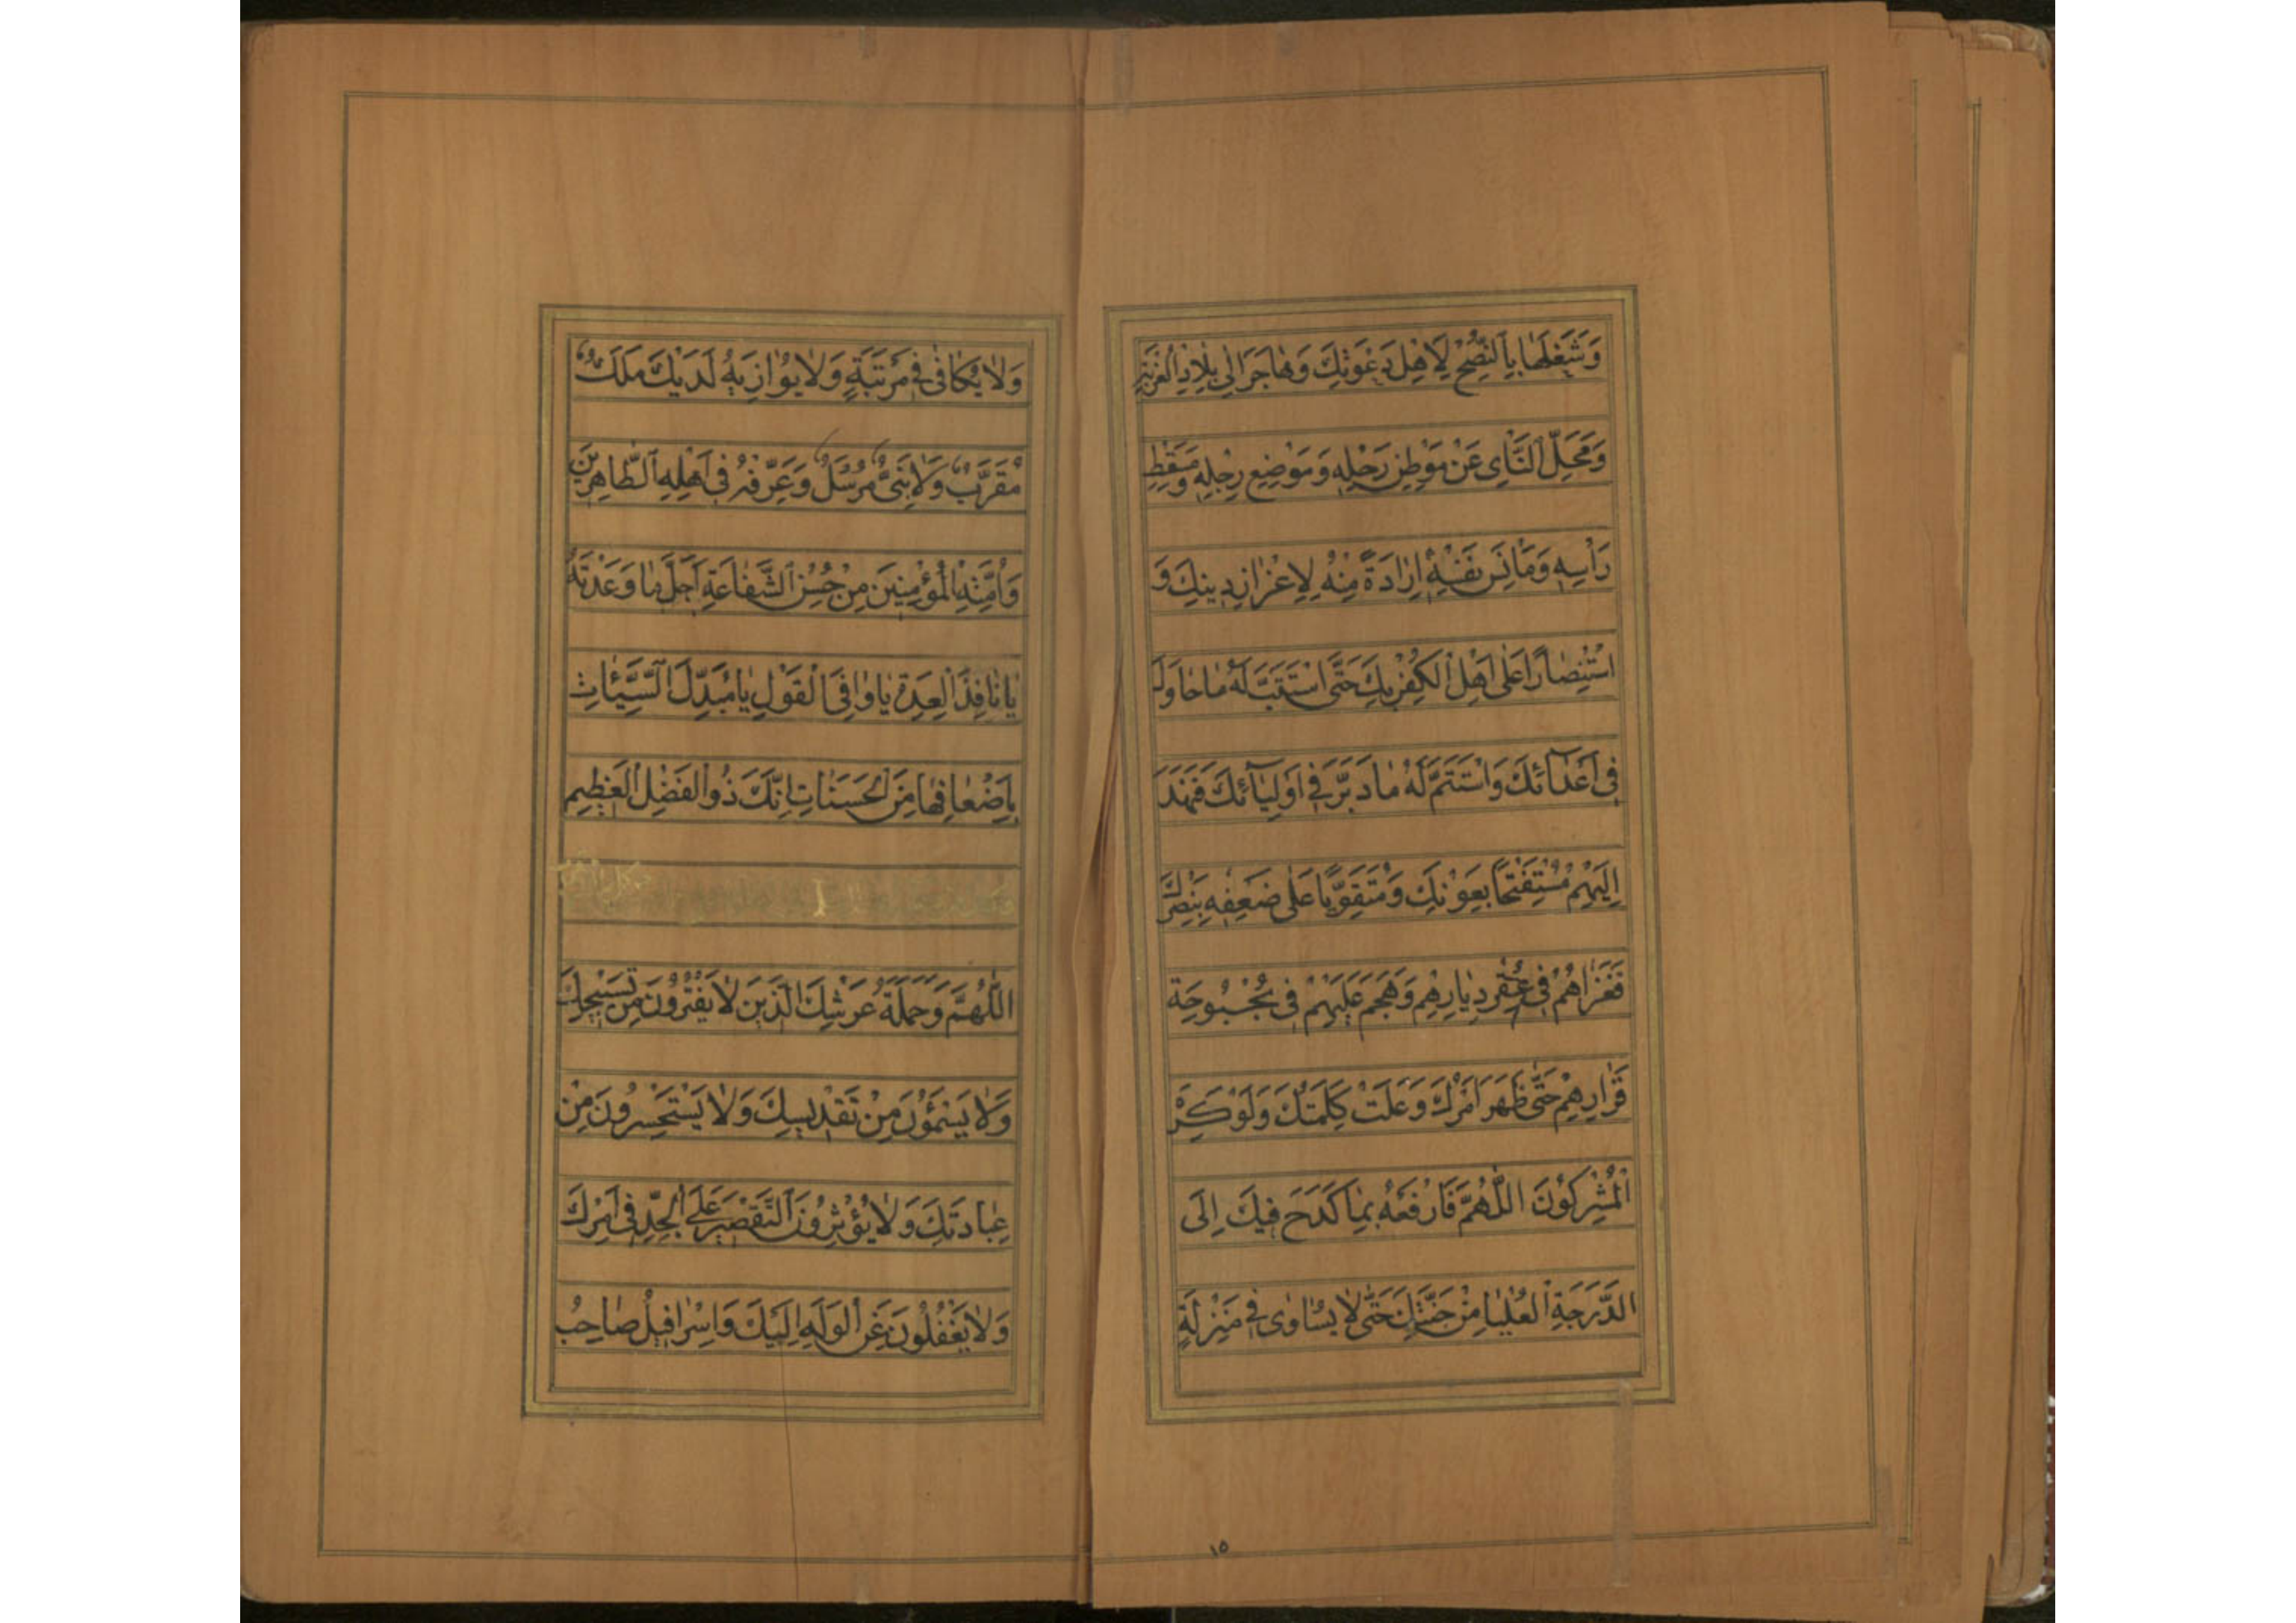 وَشَغَلَهَا بِالنُّصْحِ لِاَهْلِ دَعْوَتِكَ وَهَاجَرَ اِلٰى بِلَادِ الْغُرْبَةِ
وَمَحَلِّ النَّأْىِ عَنْ مَوْطِنِ رَحْلِهِ وَمَوْضِعِ رِجْلِهِ وَمَسْقَطِ
رَأْسِهِ وَمَأْنَسِ نَفْسِهِ اِرَادَةً مِنْهُ لِاِعْزَازِ دِينِكَ وَ
اسْتِنْصَارًا عَلٰى اَهْلِ الْكُفْرِ بِكَ حَتَّى اسْتَتَبَّ لَهُ مَا حَاوَلَ
فِى اَعْدَآئِكَ وَاسْتَتَمَّ لَهُ مَا دَبَّرَ فِى اَوْلِيَآئِكَ فَنَهَدَ
اِلَيْهِمْ مُسْتَفْتِحًا بِعَوْنِكَ وَمُتَقَوِّيًا عَلٰى ضَعْفِهِ بِنَصْرِكَ
فَغَزَاهُمْ فِى عُقْرِ دِيَارِهِمْ وَهَجَمَ عَلَيْهِمْ فِى بُحْبُوحَةِ
قَرَارِهِمْ حَتّٰى ظَهَرَ اَمْرُكَ وَعَلَتْ كَلِمَتُكَ وَلَوْ كَرِهَ
الْمُشْرِكُونَ اللّٰهُمَّ فَارْفَعْهُ بِمَا كَدَحَ فِيكَ اِلَى
الدَّرَجَةِ الْعُلْيَا مِنْ جَنَّتِكَ حَتّٰى لَا يُسَاوٰى فِى مَنْزِلَةٍ
وَلَا يُكَافٰى فِى مَرْتَبَةٍ وَلَا يُوَازِيَهُ لَدَيْكَ مَلَكٌ
مُقَرَّبٌ وَلَا نَبِىٌّ مُرْسَلٌ وَعَرِّفْهُ فِى اَهْلِهِ الطَّاهِرِينَ
وَاُمَّتِهِ الْمُؤْمِنِينَ مِنْ حُسْنِ الشَّفَاعَةِ اَجَلَّ مَا وَعَدْتَهُ
يَا نَافِذَ الْعِدَةِ يَا وَافِىَ الْقَوْلِ يَا مُبَدِّلَ السَّيِّئَاتِ
بِاَضْعَافِهَا مِنَ الْحَسَنَاتِ اِنَّكَ ذُو الْفَضْلِ الْعَظِيمِ
اللّٰهُمَّ وَحَمَلَةُ عَرْشِكَ الَّذِينَ لَا يَفْتُرُونَ مِنْ تَسْبِيحِكَ
وَلَا يَسْئَمُونَ مِنْ تَقْدِيسِكَ وَلَا يَسْتَحْسِرُونَ مِنْ
عِبَادَتِكَ وَلَا يُؤْثِرُونَ التَّقْصِيرَ عَلَى الْجِدِّ فِى اَمْرِكَ
وَلَا يَغْفُلُونَ عَنِ الْوَلَهِ اِلَيْكَ وَاِسْرَافِيلُ صَاحِبُ
١٥